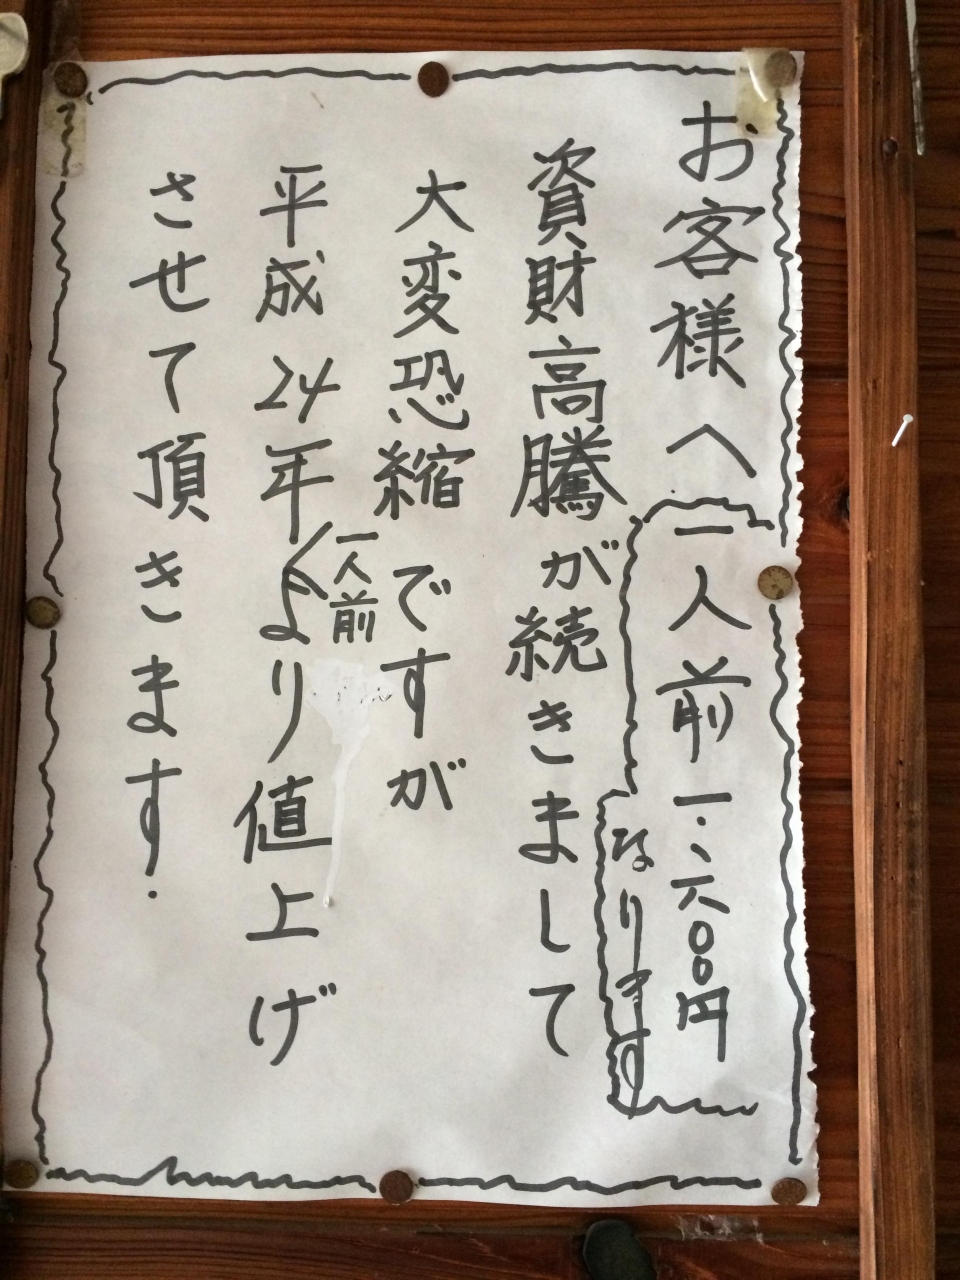 お客様へ
一人前一、六〇〇円
なります
資財高騰が続きまして
大変恐縮ですが
一人前
平成24年より値上げ
させて頂きます.